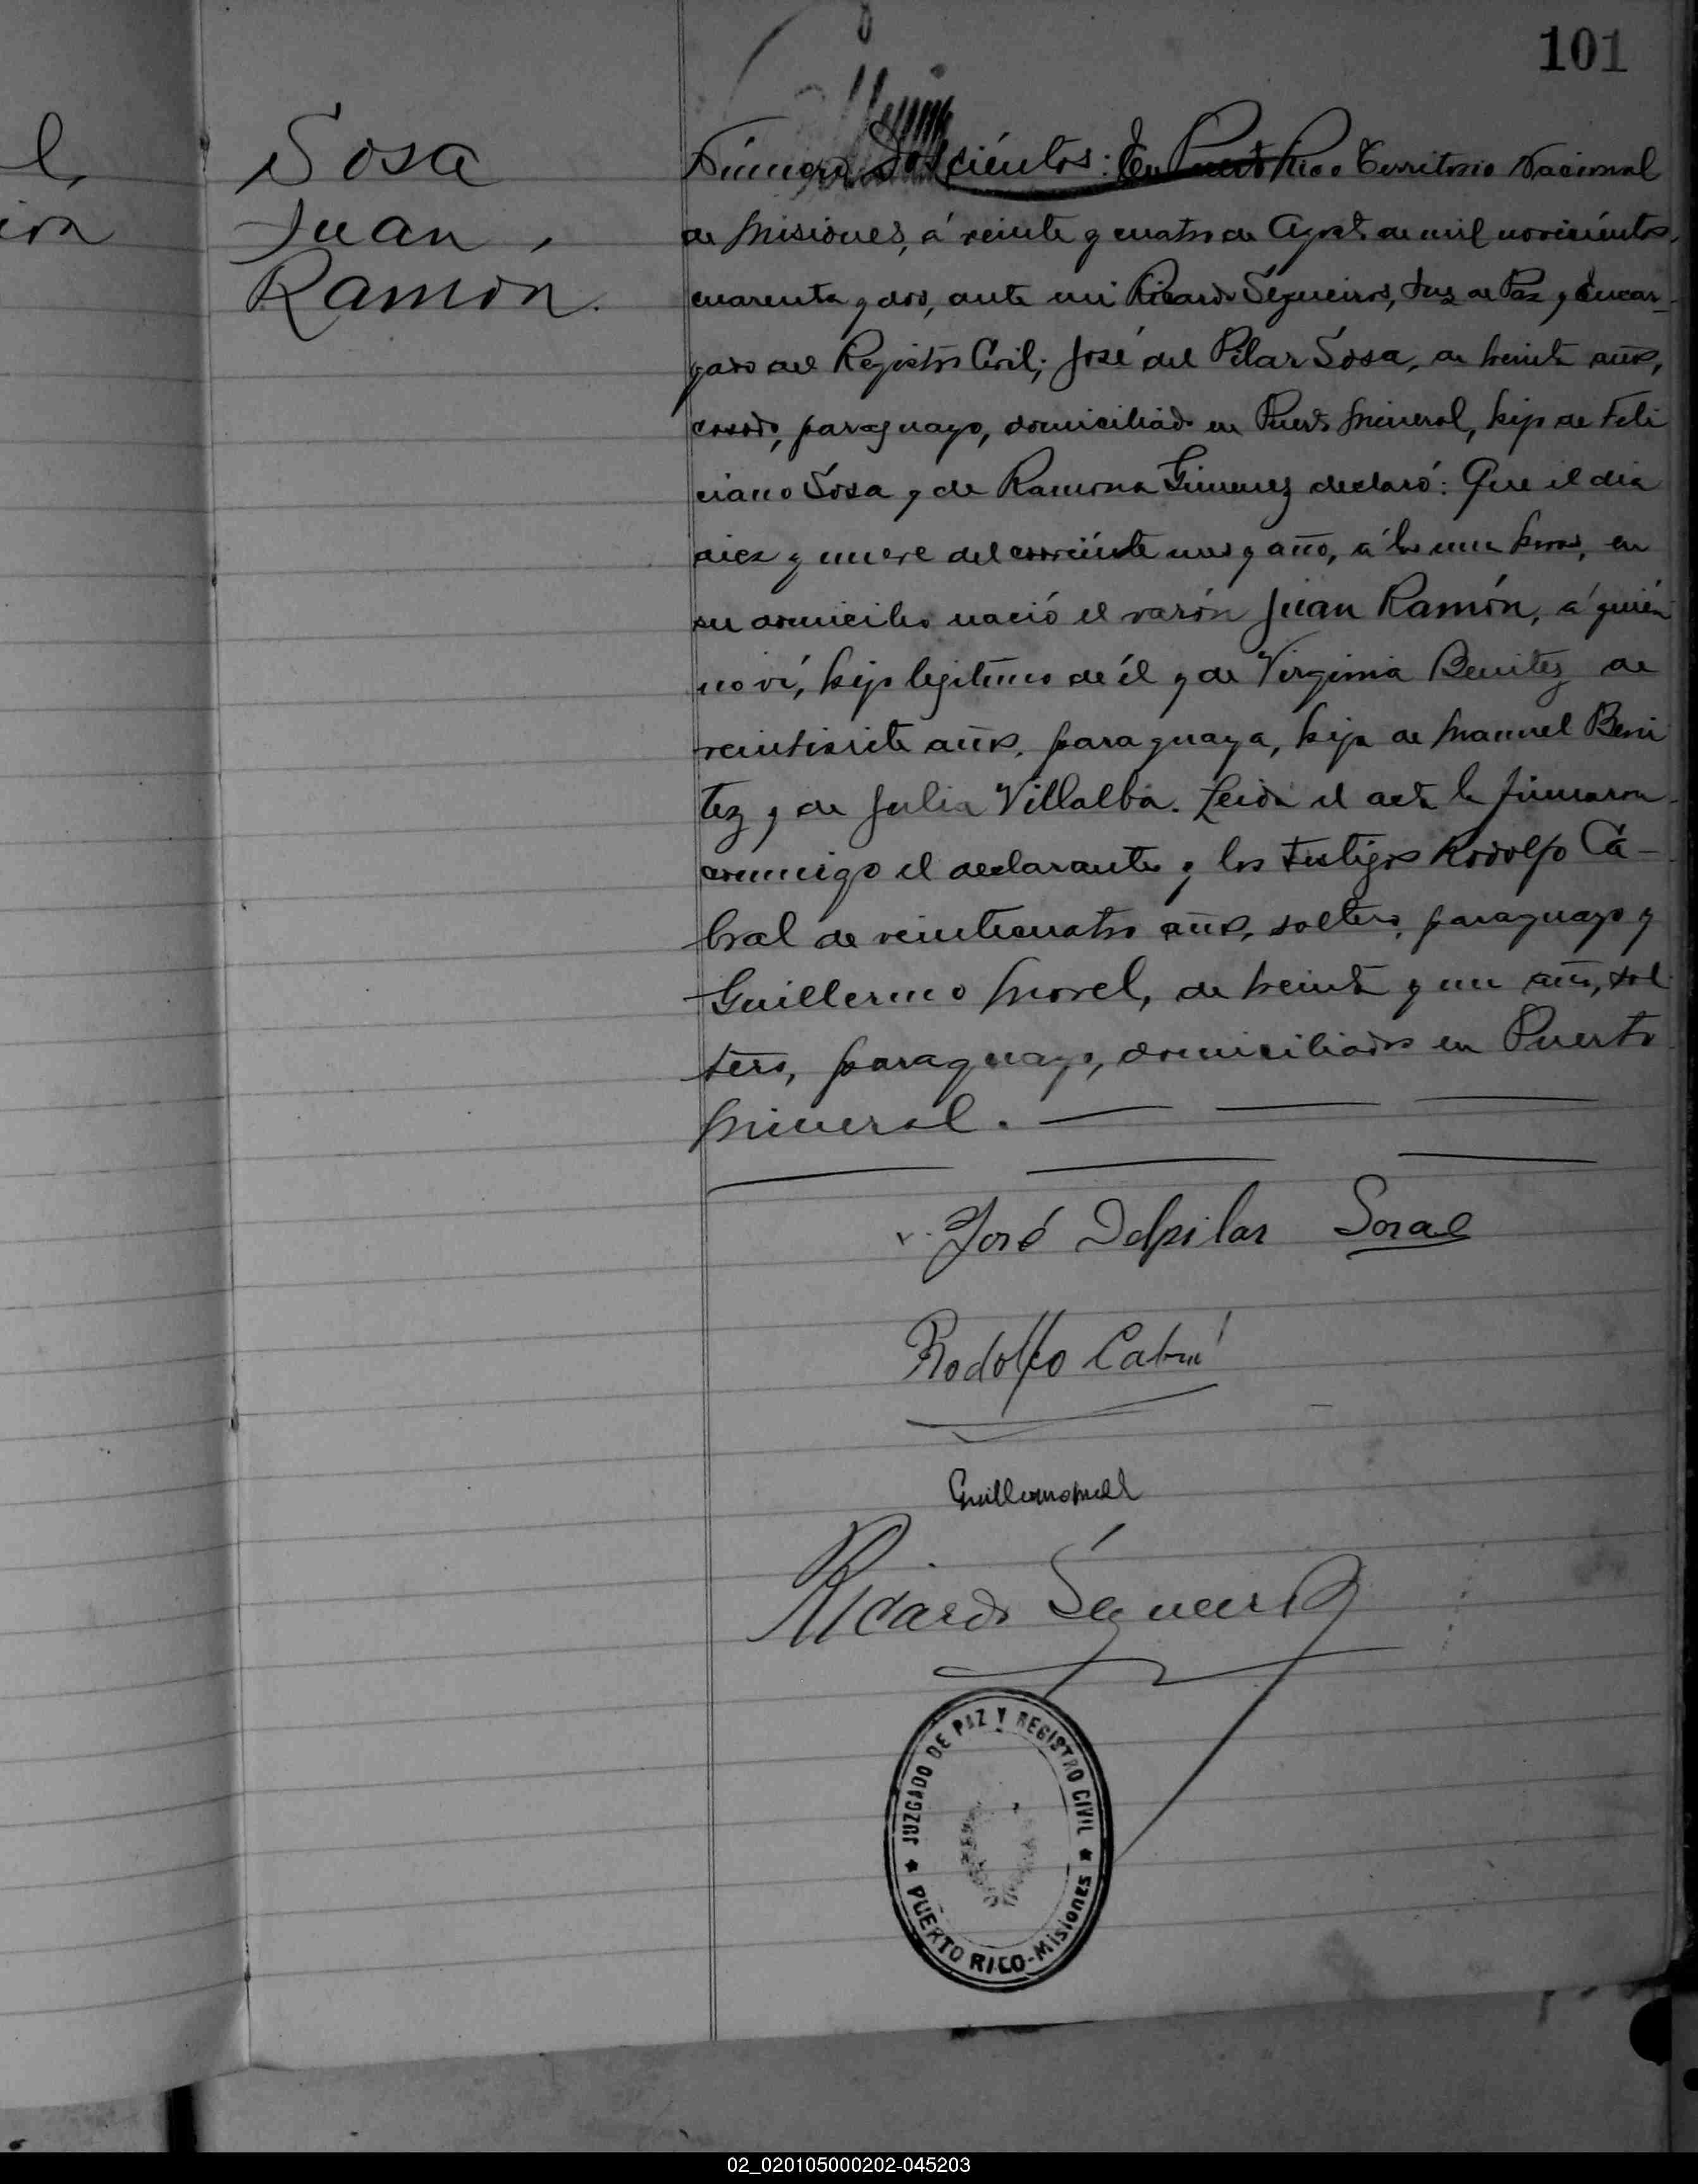 101
l,
ión
Sosa
Juan,
Ramón.
Número Doscientos: En Puerto Rico Territorio Nacional
de Misiones, á veinte y cuatro de Agosto de mil novecientos
cuarenta y dos, ante mi Ricardo Ségueiros, Juez de Paz y Encar-
gado del Registro Civil; José del Pilar Sosa, de treinta años,
casado, paraguayo, domiciliado en Puerto Mineral, hijo de Feli
ciano Sosa y de Ramona Gimenez declaró: Que el dia
diez y nueve del corriente mes y año, á las horas, en
su domicilio nació el varón Juan Ramón, á quién
no ví, hijo legítimo de él y de Virginia Benitez de
veintisiete años, paraguaya, hija de Manuel Beni
tez y de Julia Villalba. Leida el acta la firmaron
conmigo el declarante y los testigos Rodolfo Ca-
bral de veinticuatro años, soltero, paraguayo y
Guillermo Morel, de treinta y un años, sol
tero, paraguayo, domiciliados en Puerto
Mineral.
José Delpilar Sosa
Rodolfo Cabral
Guillermo Morel
Ricardo Ségueiros
JUZGADO DE PAZ Y REGISTRO CIVIL
PUERTO RICO-Misiones
02_020105000202-045203